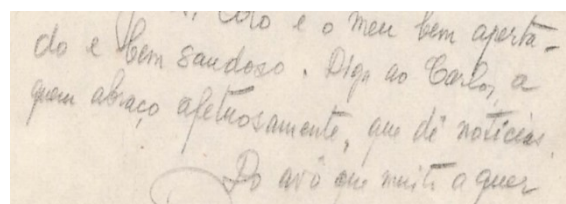 e o meu bem aperta-
do e bem saudoso. Diga ao Carlos, a
quem abraço afetuosamente, que dê notícias.
Do avô que muito a quer